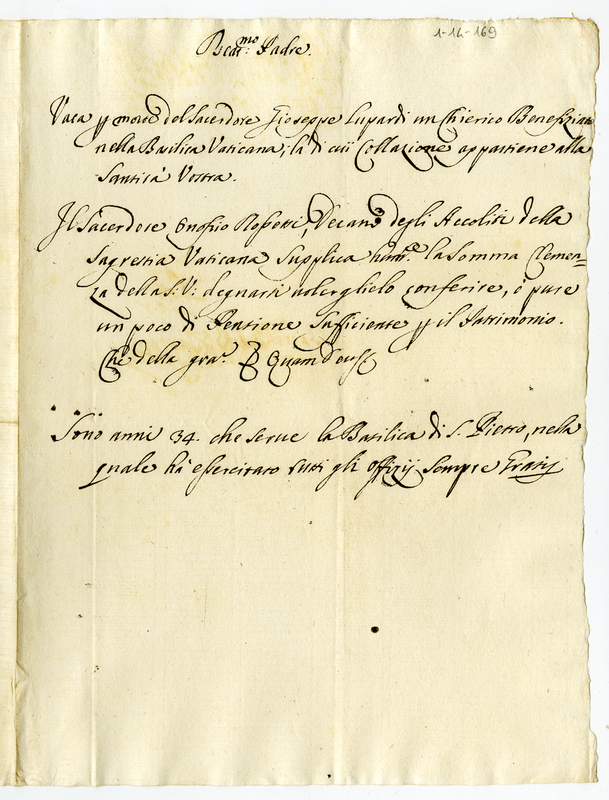 1-14-169
Beat.mo Padre.
Vaca p morte del Sacerdote Gioseppe Lupardi un Chierico Benefiziato
nella Basilica Vaticana, la di cui Collazione appartiene alla
Santità Vostra.
Il Sacerdote Onofrio Decano degli Accoliti della
Sagrestia Vaticana supplica la somma Clemen=
za della S. V. degnarsi volerglielo conferire, ò pure
un poco di Pensione sufficiente p il Patrimonio.
Che della gra. Quam Deus
Sono anni 34. che serve la Basilica di S. Pietro, nella
quale hà essercitato tutti gli offizij sempre Gratis